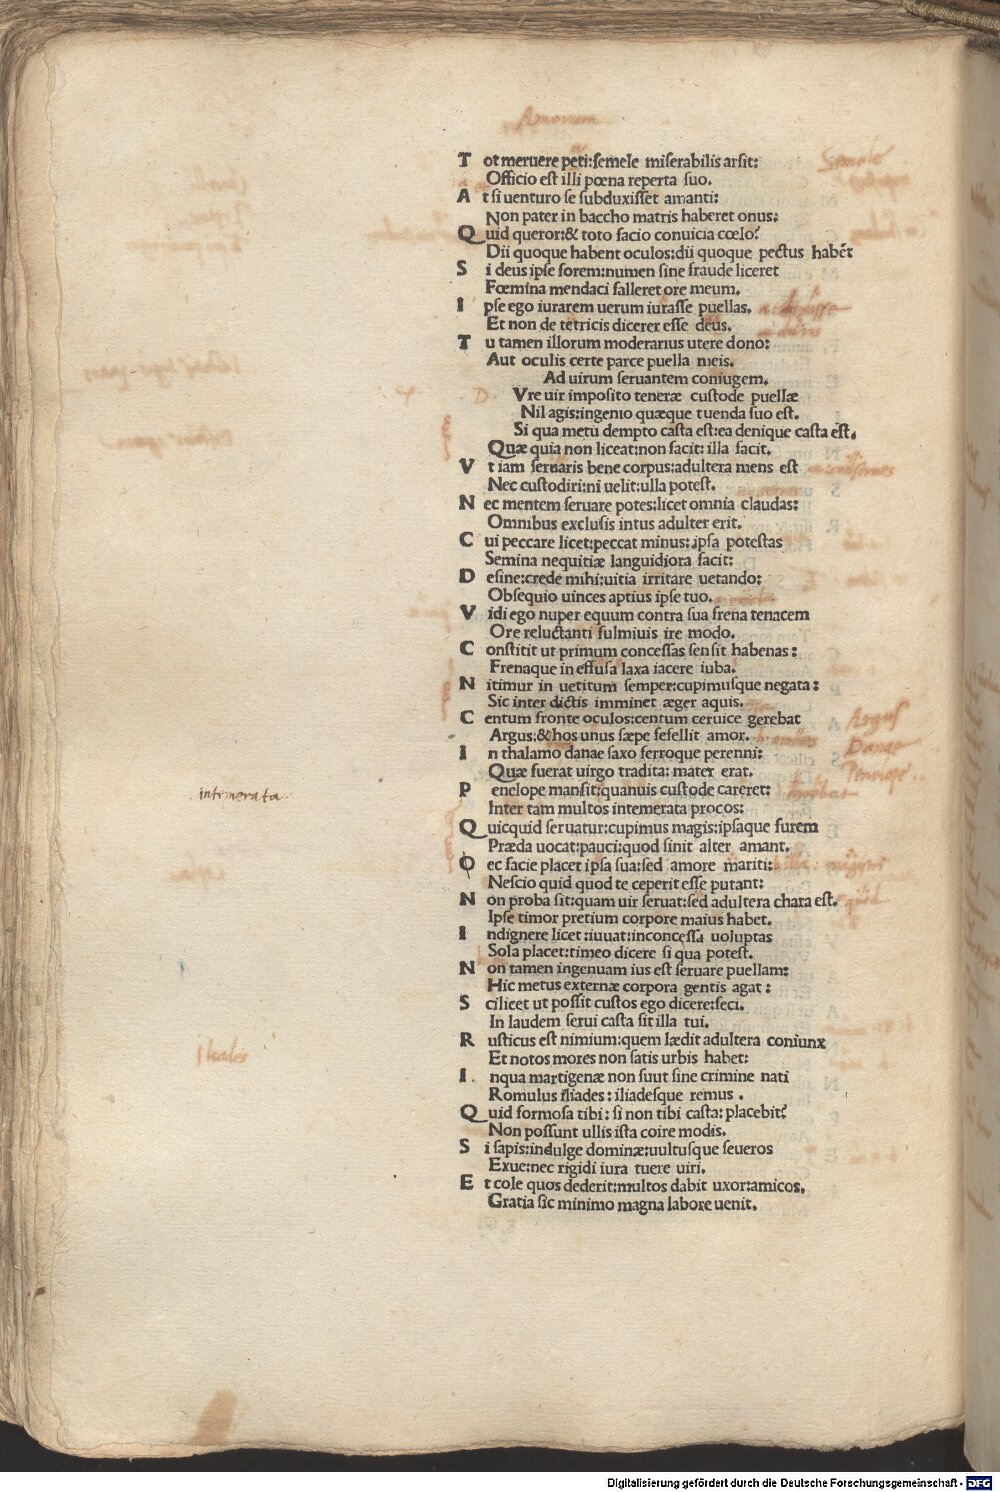 Amorum
T ot meruere peti:semele miserabilis arsit:
Officio est illi pœna reperta suo.
A t si uenturo se subduxisset amanti:
Non pater in baccho matris haberet onus:
Q uid queror:& toto facio conuicia cœlo?
Dii quoque habent oculos:dii quoque pectus habēt
S i deus ipse forem:numen sine fraude liceret
Fœmina mendaci falleret ore meum.
I pse ego iurarem uerum iurasse puellas.
Et non de tetricis dicerer esse deus.
T u tamen illorum moderarius utere dono:
Aut oculis certe parce puella meis.
Ad uirum seruantem coniugem.
D Vre uir imposito teneræ custode puellæ
Nil agis:ingenio quæque tuenda suo est.
Si qua metu dempto casta est:ea denique casta est.
Quæ quia non liceat:non facit: illa facit.
V t iam seruaris bene corpus:adultera mens est
Nec custodiri:ni uelit:ulla potest.
N ec mentem seruare potes:licet omnia claudas:
Omnibus exclusis intus adulter erit.
C ui peccare licet:peccat minus: ipsa potestas
Semina nequitiæ languidiora facit:
D esine:crede mihi:uitia irritare uetando:
Obsequio uinces aptius ipse tuo.
V idi ego nuper equum contra sua frena tenacem
Ore reluctanti fulmiuis ire modo.
C onstitit ut primum concessas sensit habenas:
Frenaque in effusa laxa iacere iuba.
N itimur in uetitum semper:cupimusque negata:
Sic inter dictis imminet æger aquis.
C entum fronte oculos:centum ceruice gerebat
Argus:& hos unus sæpe fefellit amor.
I n thalamo danae saxo ferroque perenni:
Quæ fuerat uirgo tradita: mater erat.
P enelope mansit:quanuis custode careret:
Inter tam multos intemerata procos:
Q uicquid seruatur:cupimus magis:ipsaque furem
Præda uocat:pauci:quod sinit alter amant.
O ec facie placet ipsa sua:sed amore mariti:
Nescio quid quod te ceperit esse putant:
N on proba fit:quam uir seruat:sed adultera chara est.
Ipse timor pretium corpore maius habet.
I ndignere licet:iuuat:inconcessa uoluptas
Sola placet:timeo dicere si qua potest.
N on tamen ingenuam ius est seruare puellam:
Hic metus externæ corpora gentis agat:
S cilicet ut possit custos ego dicere:feci.
In laudem serui casta sit illa tui.
R usticus est nimium:quem lædit adultera coniunx
Et notos mores non satis urbis habet:
I nqua martigenæ non suut sine crimine nati
Romulus iliades: iliadesque remus.
Q uid formosa tibi: si non tibi casta: placebit?
Non possunt ullis ista coire modis.
S i sapis:indulge dominæ:uultusque seueros
Exue:nec rigidi iura tuere uiri.
E t cole quos dederit:multos dabit uxor:amicos.
Gratia sic minimo magna labore uenit.
Semele
Argus
Danae
Penelope
intemerata
Iliades
Digitalisierung gefördert durch die Deutsche Forschungsgemeinschaft - DFG